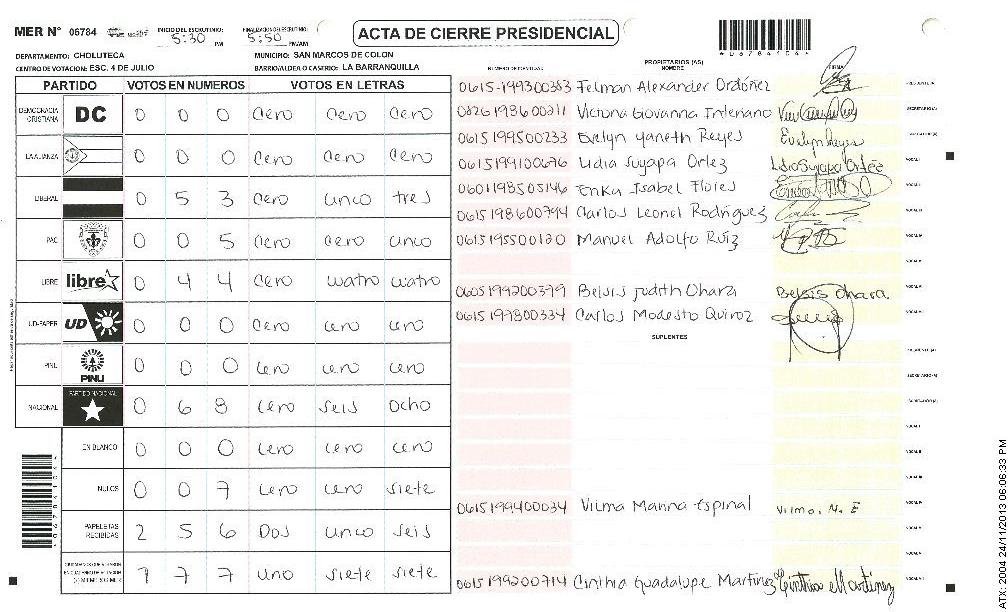 MER N° 06784 INICIO DEL ESCRUTINIO: 5:30 PM FINALIZACION DEL ESCRUTINIO: 5:50 PM/AM
ACTA DE CIERRE PRESIDENCIAL
DEPARTAMENTO: CHOLUTECA MUNICIPIO: SAN MARCOS DE COLON
CENTRO DE VOTACION: ESC. 4 DE JULIO BARRIO/ALDEA O CASERIO: LA BARRANQUILLA
PARTIDO VOTOS EN NUMEROS VOTOS EN LETRAS
DEMOCRACIA CRISTIANA DC 0 0 0 Cero Cero Cero
LA ALIANZA 0 0 0 Cero Cero Cero
LIBERAL 0 5 3 Cero cinco tres
PAC 0 0 5 Cero cero cinco
LIBRE libre 0 4 4 Cero cuatro cuatro
UD-FAPER UD 0 0 0 Cero cero cero
PINU PINU 0 0 0 cero cero cero
NACIONAL PARTIDO NACIONAL 0 6 8 cero seis ocho
EN BLANCO 0 0 0 cero cero cero
NULOS 0 0 7 cero cero siete
PAPELETAS RECIBIDAS 2 5 6 Dos cinco seis
1 7 7 uno siete siete
NUMERO DE IDENTIDAD PROPIETARIOS (AS) NOMBRE FIRMA
0615-199300353 Felman Alexander Ordoñez PRESIDENTE/A
0826198600211 Victoria Giovanna Interiano SECRETARIO (A)
0615199500233 Evelyn Yaneth Reyes Evelyn Reyes
0615199100676 Lidia Suyapa Ortez Lidia Suyapa Ortéz VOCAL I
0601198505146 Erika Isabel Flores VOCAL II
0615198600794 Carlos Leonel Rodriguez VOCAL III
0615195500120 Manuel Adolfo Ruiz VOCAL IV
VOCAL V
0605199200399 Belsis Judith Ohara Belsis Ohara.
0615197800334 Carlos Modesto Quiroz
SUPLENTES
PRESIDENTE (A)
SECRETARIO (A)
VOCAL I
VOCAL II
VOCAL III
0615199400034 Vilma Marina Espinal Vilma. M. E VOCAL IV
VOCAL V
0615199200714 Cinthia Guadalupe Martinez Cinthia Martinez
ATX 2004 24/11/2013 06:06:33 PM